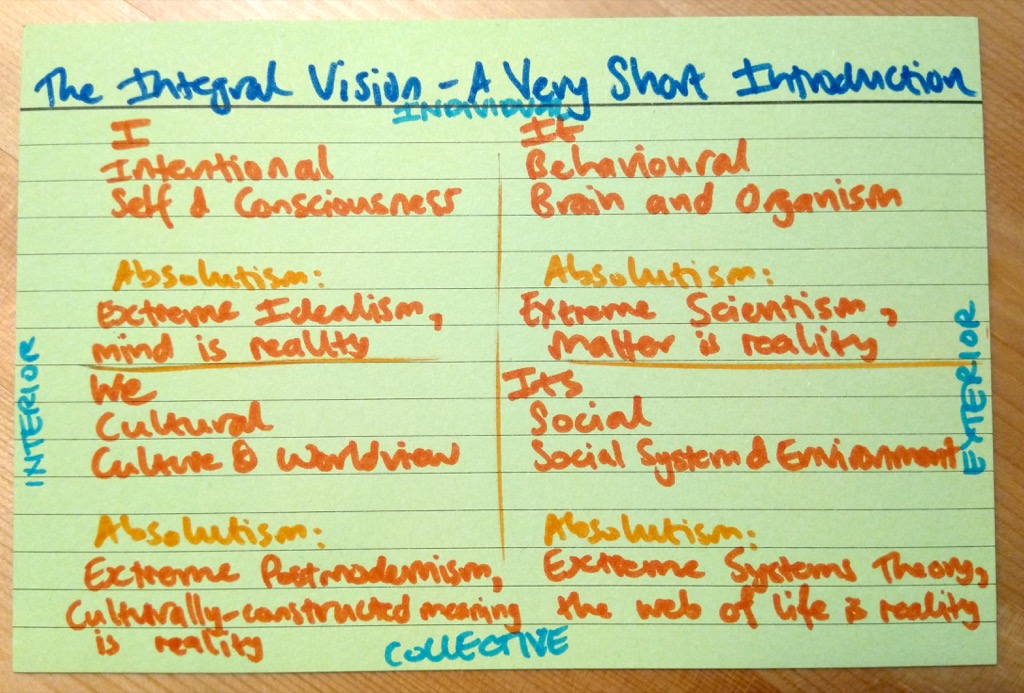 The Integral Vision - A Very Short Introduction
INDIVIDUAL
I
Intentional
Self & Consciousness
Absolutism:
Extreme Idealism,
mind is reality
It
Behavioural
Brain and Organism
Absolutism:
Extreme Scientism,
Matter is reality
INTERIOR
EXTERIOR
We
Cultural
Culture & Worldview
Absolutism:
Extreme Postmodernism,
Culturally-constructed meaning
is reality
Its
Social
Social System & Environment
Absolutism:
Extreme Systems Theory,
the web of life is reality
COLLECTIVE